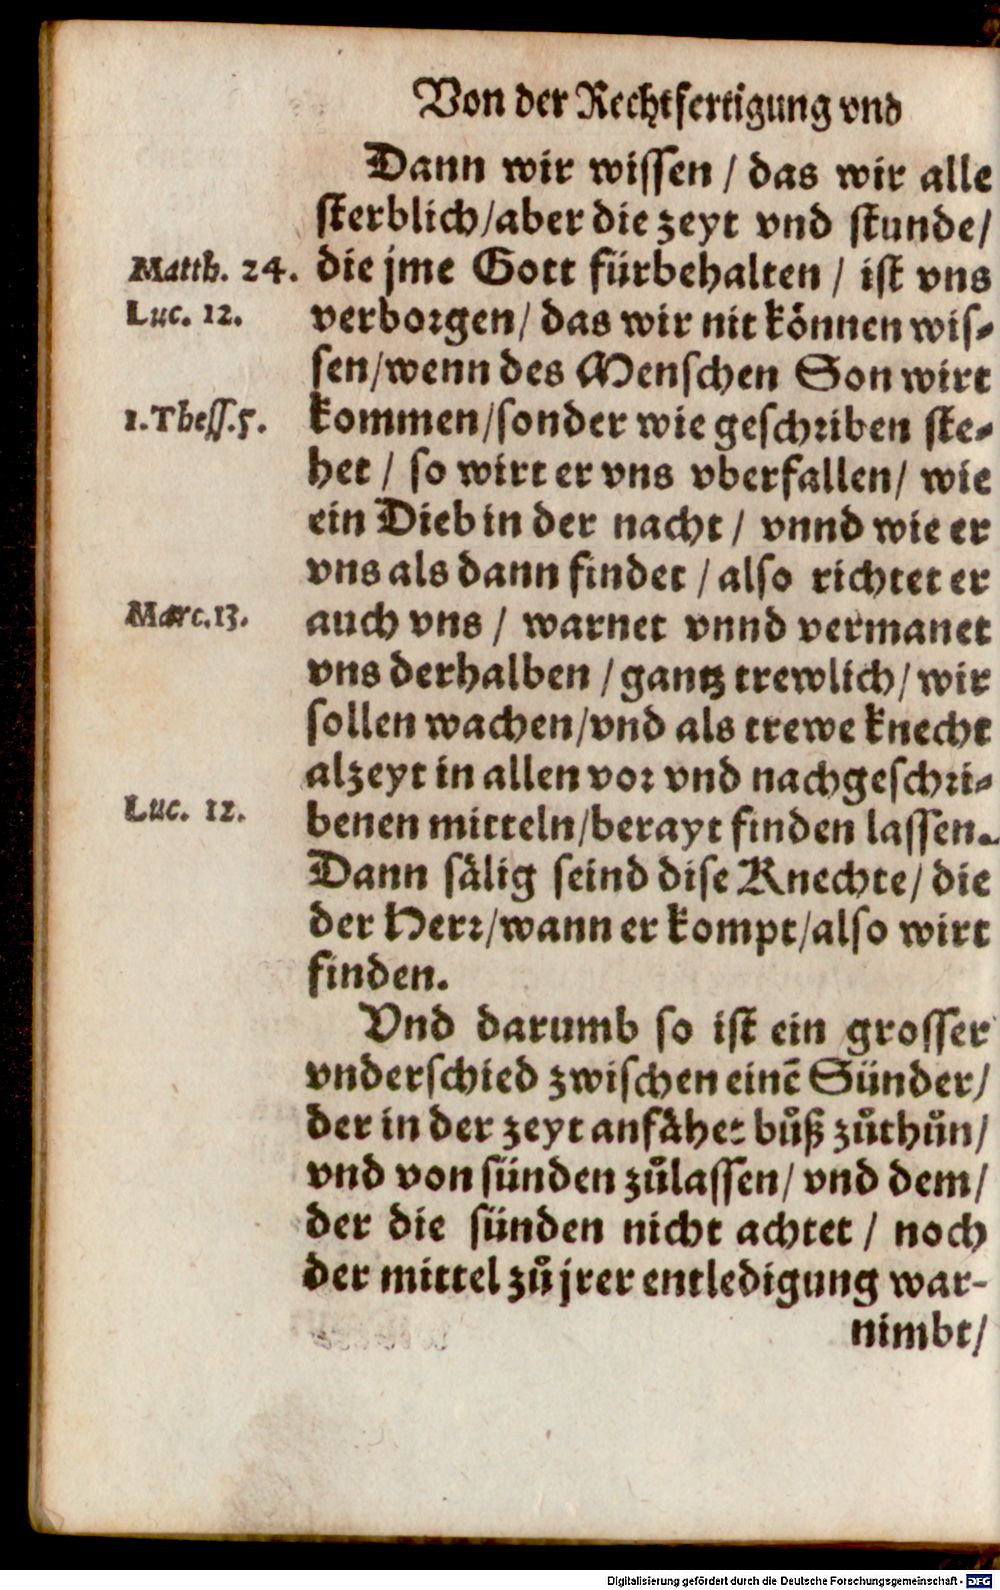 Von der Rechtfertigung vnd
Dann wir wissen / das wir alle
sterblich/aber die zeyt vnd stunde/
Matth. 24. die jme Gott fürbehalten / ist vns
Luc. 12. verborgen/ das wir nit können wis-
sen/wenn des Menschen Son wirt
1. Thess. 5. kommen/sonder wie geschriben ste-
het / so wirt er vns vberfallen/ wie
ein Dieb in der nacht / vnnd wie er
vns als dann findet / also richtet er
Marc. 13. auch vns / warnet vnnd vermanet
vns derhalben / gantz trewlich/ wir
sollen wachen/vnd als trewe knecht
alzeyt in allen vor vnd nachgeschri-
Luc. 12. benen mitteln/berayt finden lassen.
Dann sälig seind dise Knechte/ die
der Herr/wann er kompt/also wirt
finden.
Vnd darumb so ist ein grosser
vnderschied zwischen einē Sünder/
der in der zeyt anfähet bůß zůthůn/
vnd von sünden zůlassen/ vnd dem/
der die sünden nicht achtet / noch
der mittel zů jrer entledigung war-
nimbt/
Digitalisierung gefördert durch die Deutsche Forschungsgemeinschaft - DFG